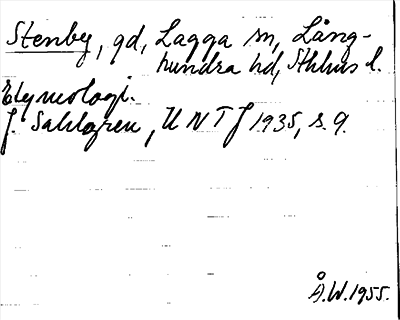 Stenby, gd, Lagga sn, Lång-
hundra hd, Sthlms l.
Etymologi.
J. Sahlgren, UNTJ 1935, s. 9.
Å.W. 1955.